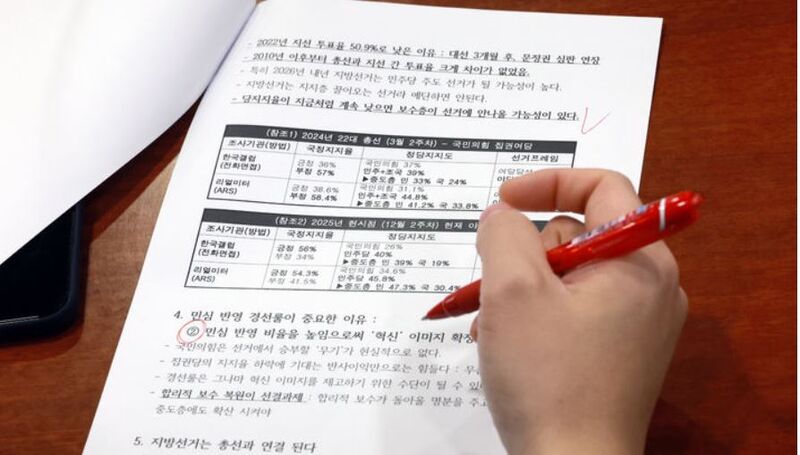 - 2022년 지선 투표율 50.9%로 낮은 이유 : 대선 3개월 후, 문정권 심판 연장
- 2010년 이후부터 총선과 지선 간 투표율 크게 차이가 없었음.
- 특히 2026년 내년 지방선거는 민주당 주도 선거가 될 가능성이 높다.
- 지방선거는 지지층 끌어오는 선거라 예단하면 안된다.
- 당지지율이 지금처럼 계속 낮으면 보수층이 선거에 안나올 가능성이 있다.
(참조1) 2024년 22대 총선 (3월 2주차) - 국민의힘 집권여당
조사기관(방법) 국정지지율 정당지지도 선거프레임
한국갤럽 (전화면접) 긍정 36% 부정 57% 국민의힘 37% 민주+조국 39% ▶중도층 민 33% 국 24%
리얼미터 (ARS) 긍정 38.6% 부정 58.4% 국민의힘 31.1% 민주+조국 44.8% ▶중도층 민 41.2% 국 33.8%
(참조2) 2025년 현시점 (12월 2주차) 현재
조사기관(방법) 국정지지율 정당지지도
한국갤럽 (전화면접) 긍정 56% 부정 34% 국민의힘 26% 민주당 40% ▶중도층 민 39% 국 19%
리얼미터 (ARS) 긍정 54.3% 부정 41.5% 국민의힘 34.6% 민주당 45.8% ▶중도층 민 47.3% 국 30.4%
4. 민심 반영 경선룰이 중요한 이유 :
② 민심 반영 비율을 높임으로써 '혁신' 이미지 확장
- 국민의힘은 선거에서 승부할 '무기'가 현실적으로 없다.
- 집권당의 지지율 하락에 기대는 반사이익만으로는 힘들다 :
- 경선룰은 그나마 혁신 이미지를 제고하기 위한 수단이 될 수
- 합리적 보수 복원이 선결과제 : 합리적 보수가 돌아올 명분을
중도층에도 확산 시켜야
5. 지방선거는 총선과 연결 된다